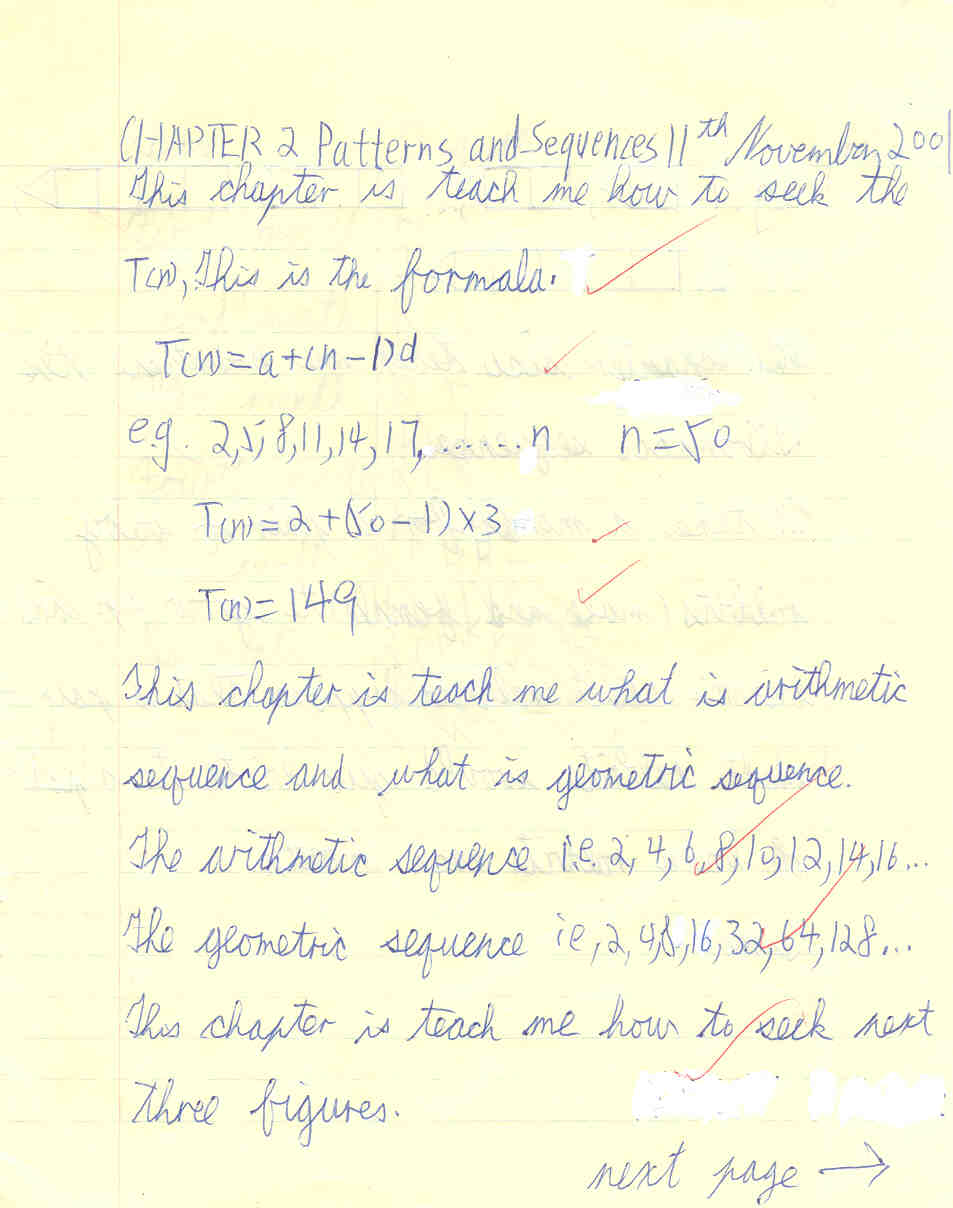 CHAPTER 2 Patterns and Sequences 11th November, 2001
This chapter is teach me how to seek the
T(n), This is the formala.
T(n)=a+(n-1)d
e.g. 2,5,8,11,14,17,.......n n=50
T(n)=2+(50-1)x3
T(n)=149
This chapter is teach me what is arithmetic
sequence and what is geometric sequence.
The arithmetic sequence i,e. 2, 4, 6, 8, 10, 12, 14, 16...
The geometric sequence ie, 2, 4, 8, 16, 32, 64, 128...
This chapter is teach me how to seek next
three figures.
next page →